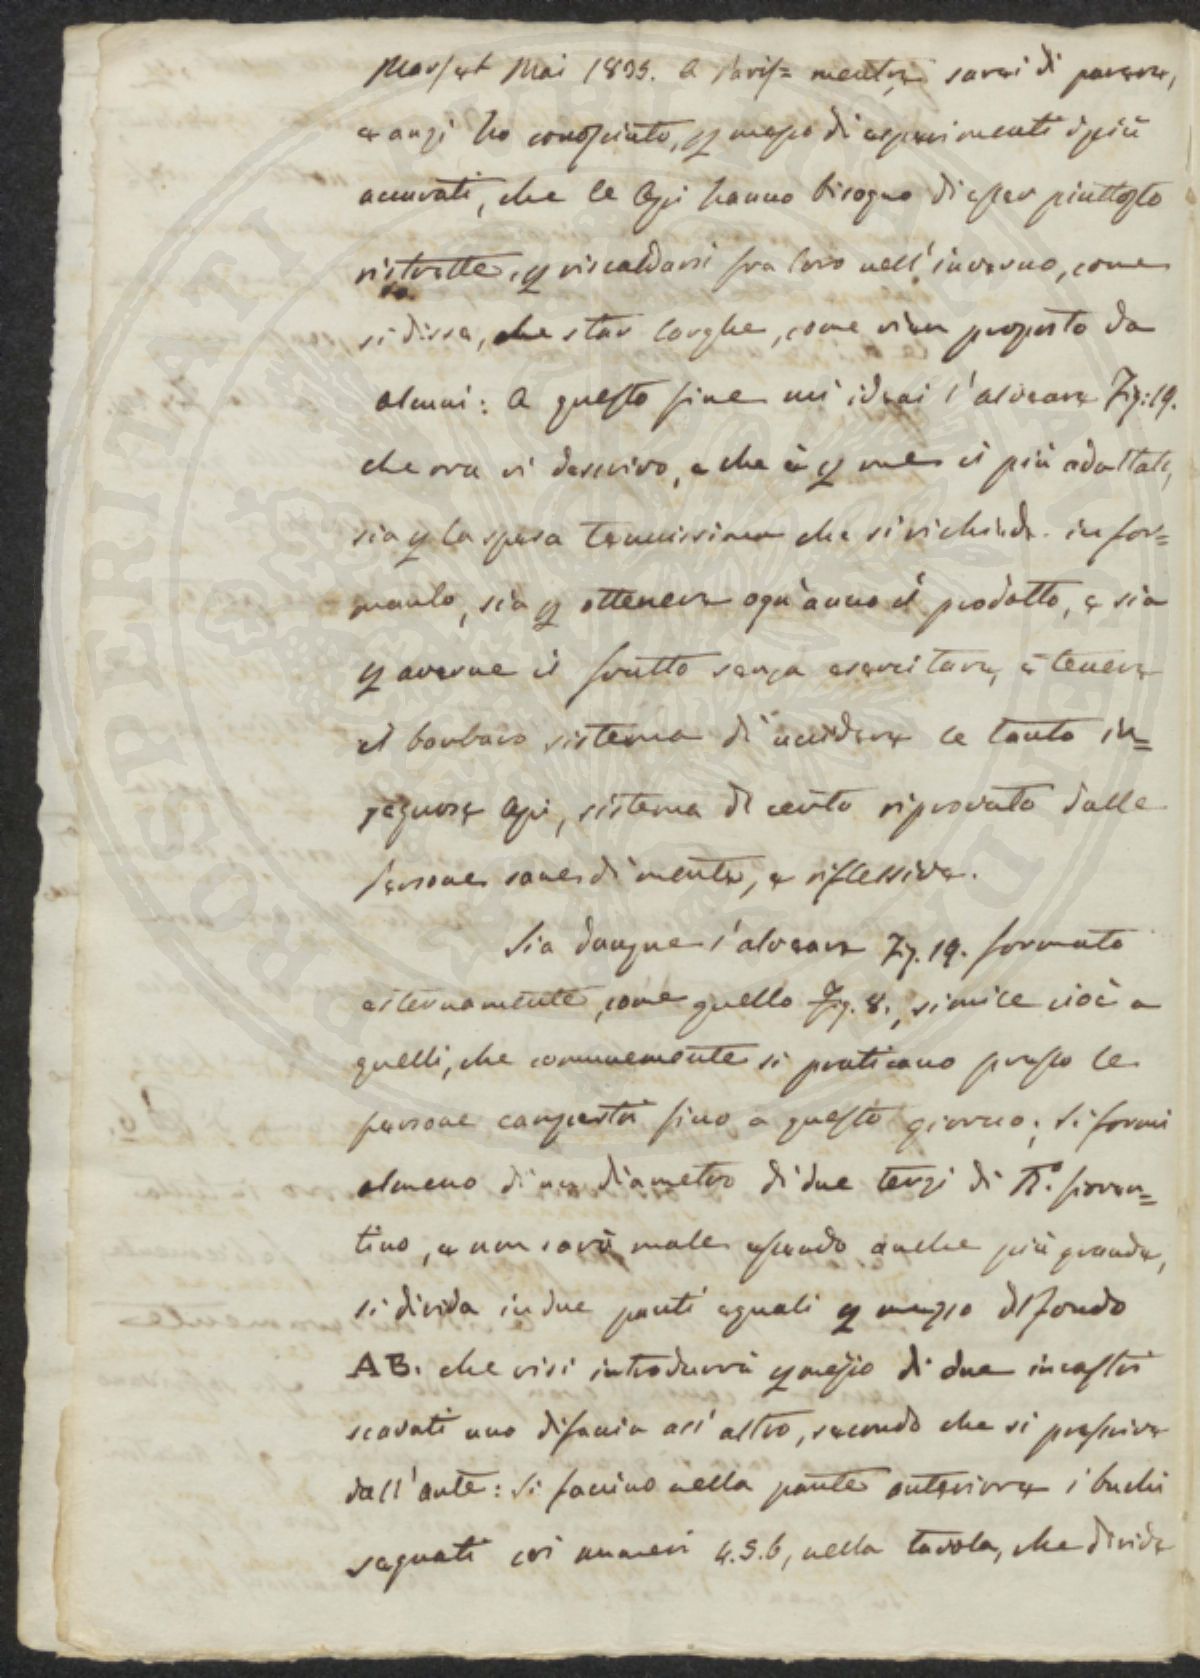 Mars et Mai 1835. a Paris= mentre sarei di parere,
e anzi ho conosciuto, p mezzo di esperimenti i più
accurati, che le Api hanno bisogno di esser piuttosto
ristrette, p riscaldarsi fra loro nell'inverno, come
si disse, che star larghe, come vien proposto da
alcuni: A questo fine mi ideai l'alveare Fig: 19.
che ora vi descrivo, e che è p me il più adattato,
sia p la spesa tenuissima che si richiede in for=
marlo, sia p ottenere ogn'anno il prodotto, e sia
p averne il frutto senza esercitare, e tenere
il barbaro sistema di uccidere le tanto in=
gegnose Api, sistema di certo riprovato dalle
persone sane di mente, e riflessive.
Sia dunque l'alveare Fig. 19. formato
esternamente, come quello Fig. 8., simile cioè a
quelli, che comunemente si praticano presso le
persone campestri fino a questo giorno; Si formi
almeno di un diametro di due terzi di Bº. fioren=
tino, e non sarà male essendo anche più grande,
si divida in due parti eguali p mezzo del fondo
AB. che vi si introdurrà p mezzo di due incastri
scavati uno di faccia all'altro, secondo che si prescrive
dall'arte: Si faccino nella parte anteriore i buchi
segnati coi numeri 4.5.6, nella tavola, che divide